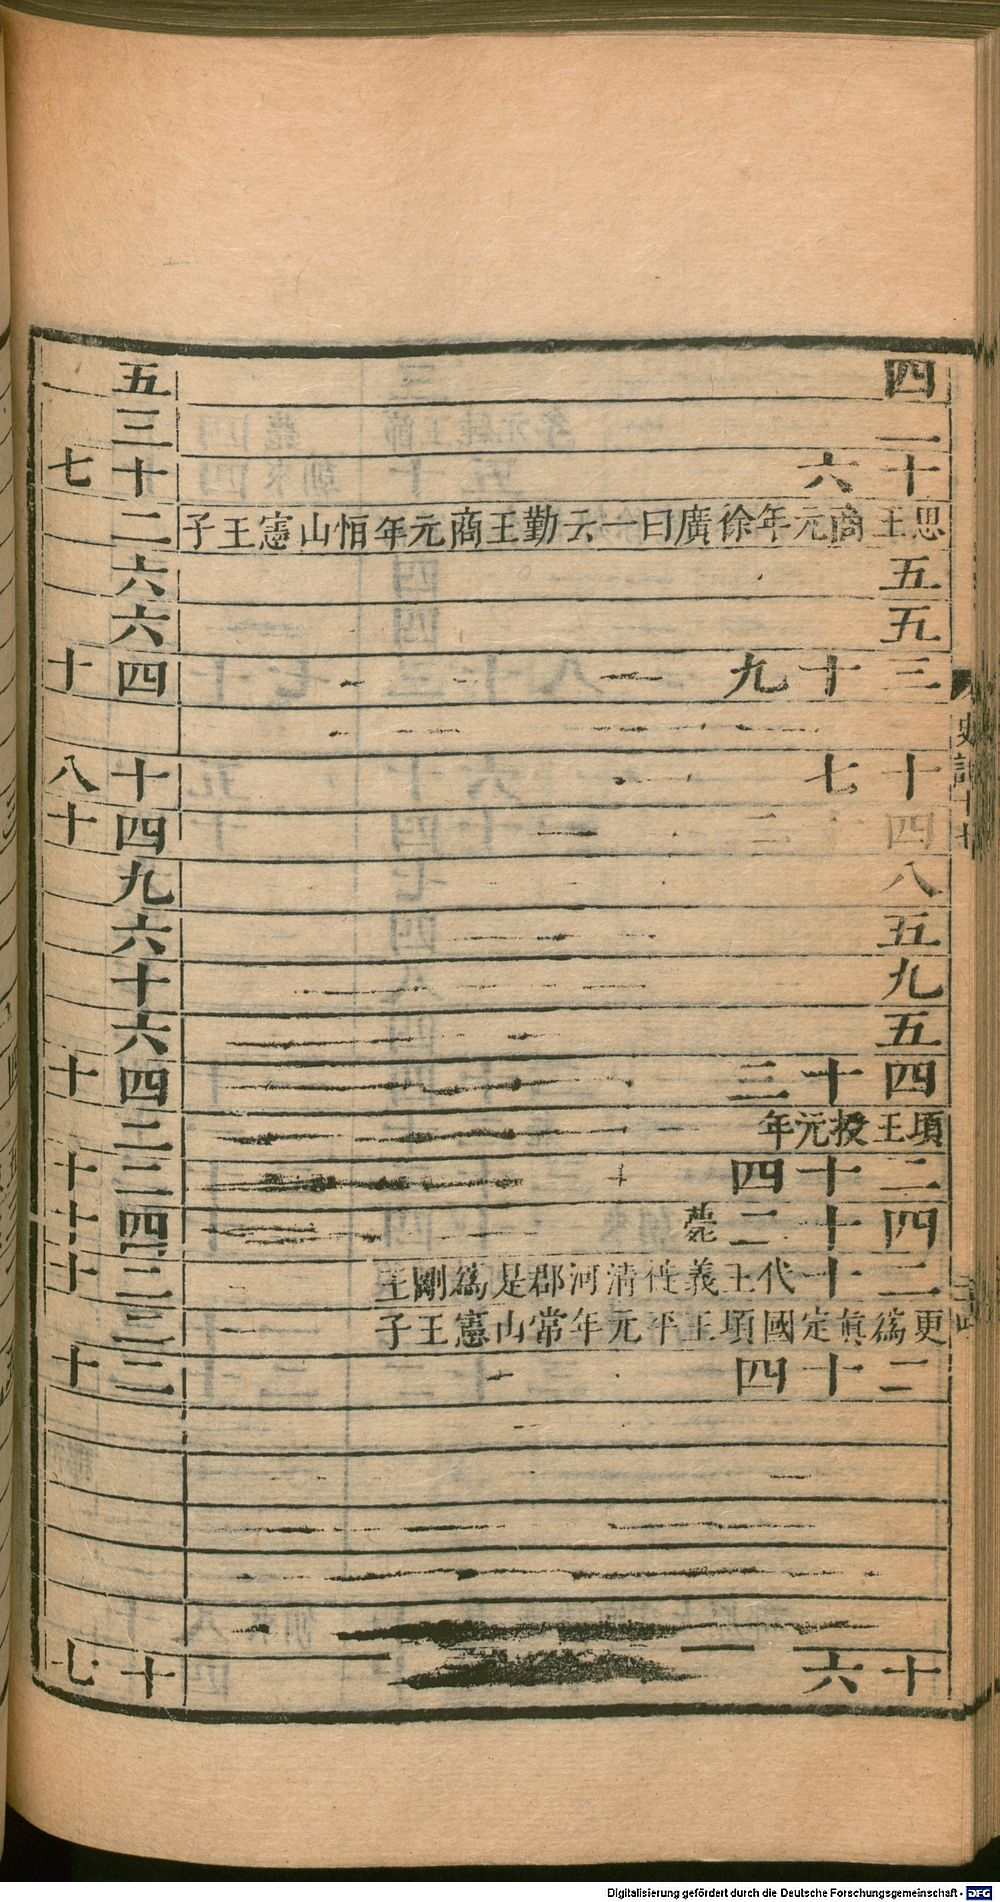 四
二
十六
思王商元年徐廣曰一云勤王商元年恒山憲王子
五
五
三十九
十七
四十
八
五
九
五
四十三
頃王授元年
二十四
四十二薨
二十代王義徙清河郡是爲剛王
更爲眞定國頃王平元年常山憲王子
二十四
十六
五
三
十七
二
六
六
四十
十八
四十
九
六
十
六
四十
二
二十
四十
二十
二
二十
十七
史記十七
Digitalisierung gefördert durch die Deutsche Forschungsgemeinschaft - DFG